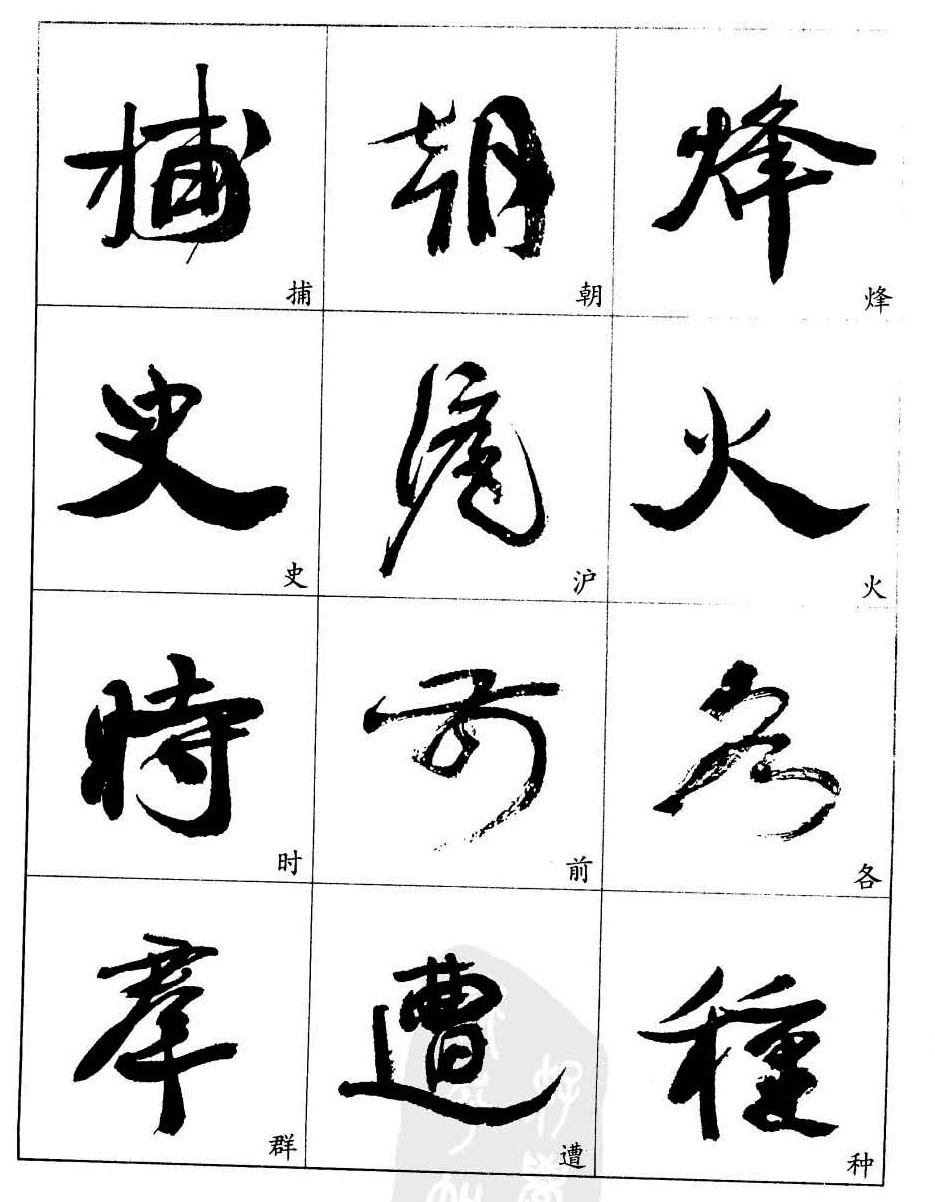 烽火各種
烽火各种
朝滬前遭
朝沪前遭
捕史時羣
捕史时群